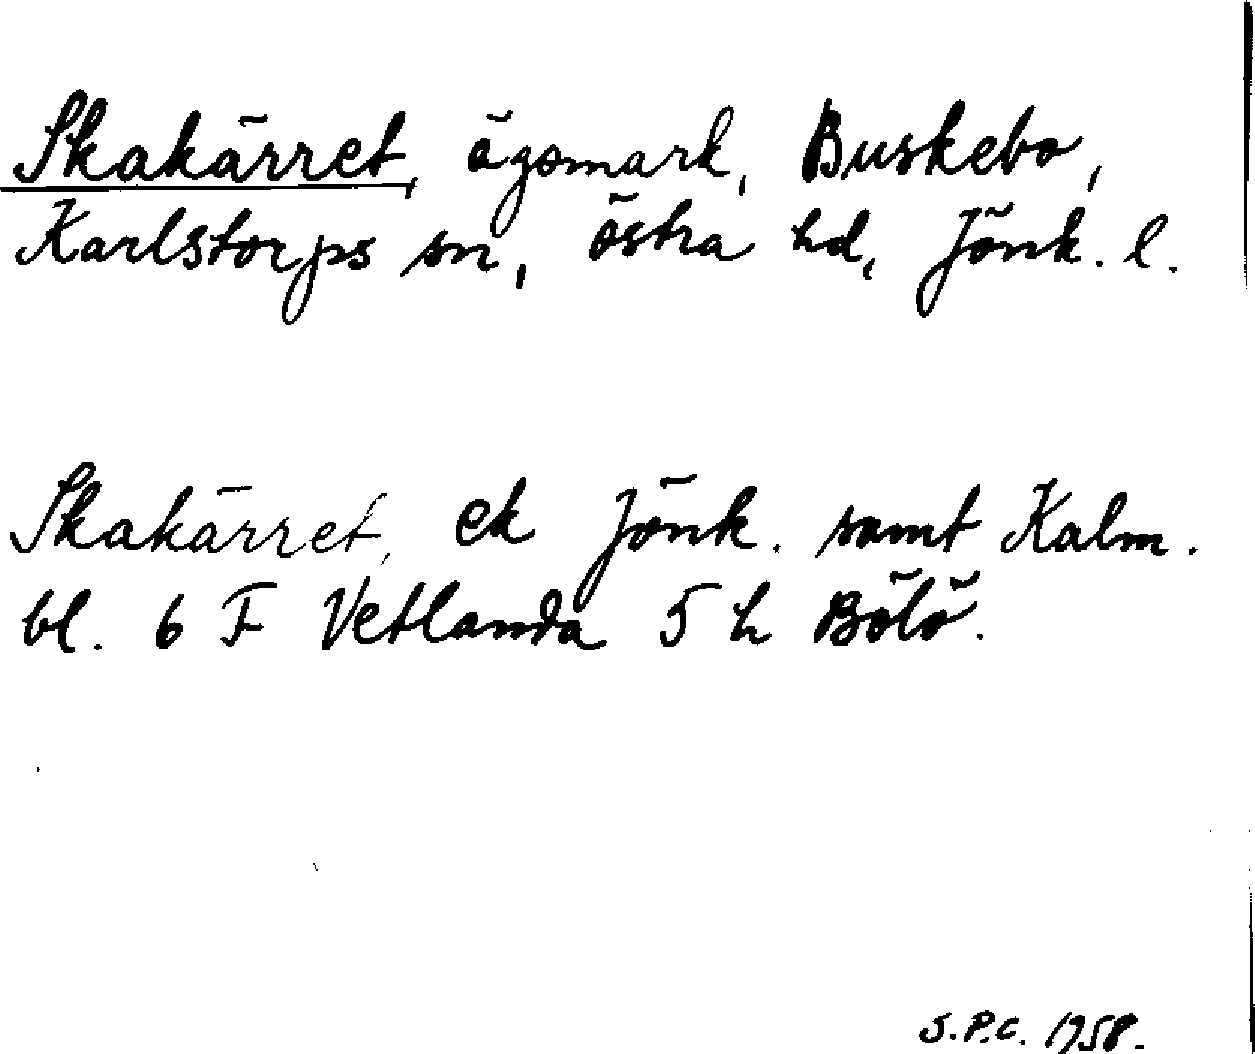 Skakärret, ägomark, Buskebo,
Karlstorps sn, östra hd, Jönk. l.
Skakärret, ek Jönk. samt Kalm.
bl. 6 F Vetlanda 5 h Bölö.
S.P.C. 1958.